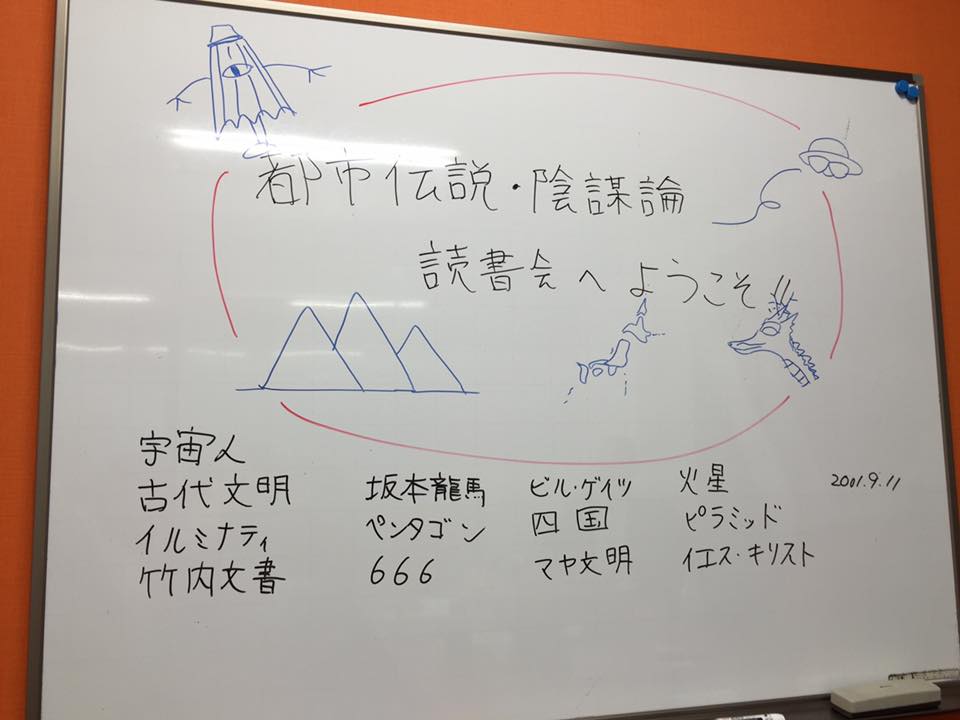 都市伝説・陰謀論
読書会へようこそ
宇宙人
古代文明 坂本龍馬 ビル・ゲイツ 火星 2001.9.11
イルミナティ ペンタゴン 四国 ピラミッド
竹内文書 666 マヤ文明 イエス・キリスト